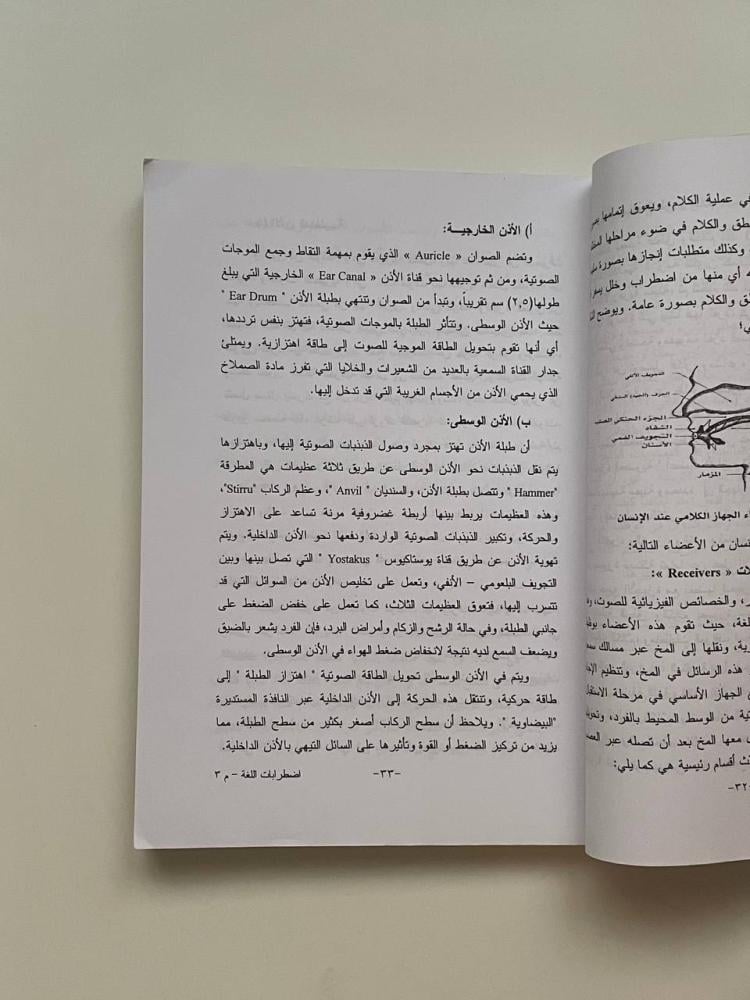 أ) الأذن الخارجيـــة:
وتضم الصوان « Auricle » الذي يقوم بمهمة التقاط وجمع الموجات
الصوتية، ومن ثم توجيهها نحو قناة الأذن « Ear Canal » الخارجية التي يبلغ
طولها(٢,٥) سم تقريباً، وتبدأ من الصوان وتنتهي بطبلة الأذن " Ear Drum "
حيث الأذن الوسطى. وتتأثر الطبلة بالموجات الصوتية، فتهتز بنفس ترددها،
أي أنها تقوم بتحويل الطاقة الموجية للصوت إلى طاقة اهتزازية. ويمتلئ
جدار القناة السمعية بالعديد من الشعيرات والخلايا التي تفرز مادة الصملاخ
الذي يحمي الأذن من الأجسام الغريبة التي قد تدخل إليها.
ب) الأذن الوسطى:
أن طبلة الأذن تهتز بمجرد وصول الذبذبات الصوتية إليها، وباهتزازها
يتم نقل الذبذبات نحو الأذن الوسطى عن طريق ثلاثة عظيمات هي المطرقة
"Hammer" وتتصل بطبلة الأذن، والسنديان " Anvil "، وعظم الركاب "Stirru"،
وهذه العظيمات يربط بينها أربطة غضروفية مرنة تساعد على الاهتزاز
والحركة، وتكبير الذبذبات الصوتية الواردة ودفعها نحو الأذن الداخلية. ويتم
تهوية الأذن عن طريق قناة يوستاكيوس " Yostakus " التي تصل بينها وبين
التجويف البلعومي – الأنفي، وتعمل على تخليص الأذن من السوائل التي قد
تتسرب إليها، فتعوق العظيمات الثلاث، كما تعمل على خفض الضغط على
جانبي الطبلة، وفي حالة الرشح والزكام وأمراض البرد، فإن الفرد يشعر بالضيق
ويضعف السمع لديه نتيجة لانخفاض ضغط الهواء في الأذن الوسطى.
ويتم في الأذن الوسطى تحويل الطاقة الصوتية " اهتزاز الطبلة " إلى
طاقة حركية، وتنتقل هذه الحركة إلى الأذن الداخلية عبر النافذة المستديرة
"البيضاوية ". ويلاحظ أن سطح الركاب أصغر بكثير من سطح الطبلة، مما
يزيد من تركيز الضغط أو القوة وتأثيرها على السائل التيهي بالأذن الداخلية.
-٣٣-
اضطرابات اللغة – م ٣
في عملية الكلام، ويعوق إتمامها
والكلام في ضوء مراحلها
وكذلك متطلبات إنجازها بصورة
أي منها من اضطراب وخلل
والكلام بصورة عامة. ويوضح
التجويف الأنفي
الجزء الحنكي الصلب
الشفاه
التجويف الفمي
الأسنان
المزمار
الجهاز الكلامي عند الإنسان
من الأعضاء التالية:
« Receivers »:
والخصائص الفيزيائية للصوت،
حيث تقوم هذه الأعضاء
ونقلها إلى المخ عبر مسالك
هذه الرسائل في المخ، وتنظيم
الجهاز الأساسي في مرحلة
من الوسط المحيط بالفرد،
معها المخ بعد أن تصله عبر
أقسام رئيسية هي كما يلي:
-٣٢